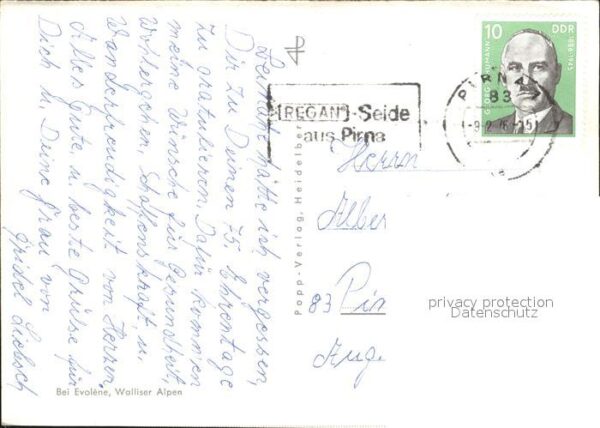 Leider hätte ich vergessen,
Dir zu Deinem 75. Ehrentage
zu gratulieren. Dafür kommen
meine Wünsche für Gesundheit,
Wohlergehen, Schaffenskraft, u.
Wanderfreudigkeit von Herzen.
Alles Gute u. beste Grüße für
Dich u. Deine Frau von
Bei Evolène, Walliser Alpen
Popp-Verlag, Heidelber
[REGAN]-Seide
aus Pirna
PIRN
83
-9.2.76-15
10
DDR
1881-1945
Herrn
Alber
83 Pir
Aug
privacy protection
Datenschutz